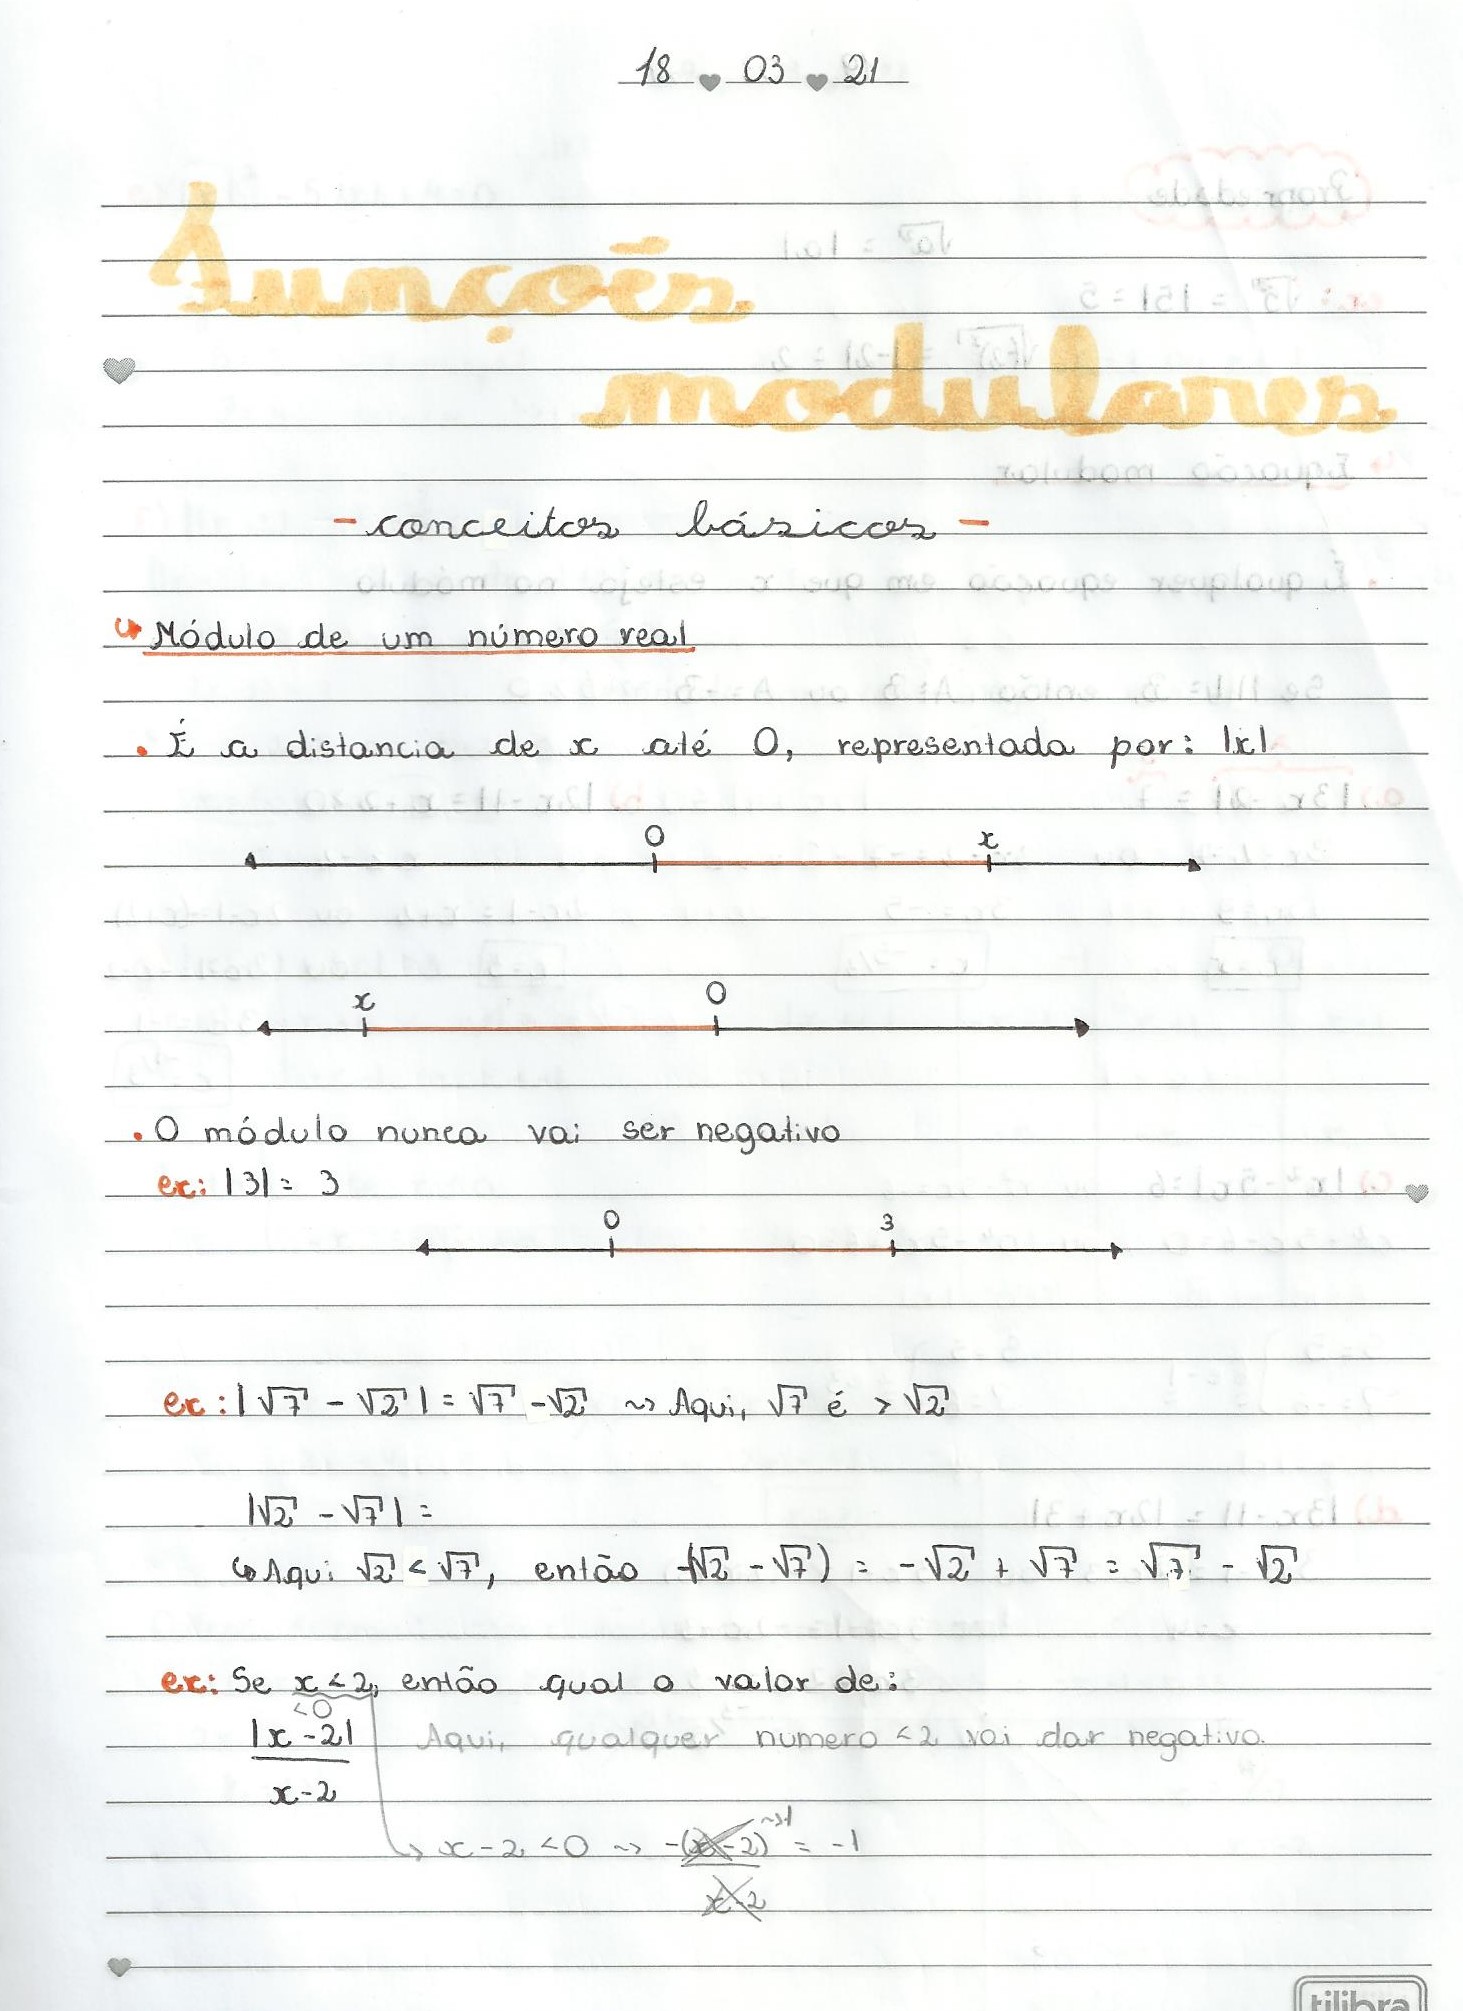 18 03 21
funções
modulares
- conceitos básicos -
Módulo de um número real
• É a distancia de x até 0, representada por: |x|
0 x
x 0
• O módulo nunca vai ser negativo
ex: |3| = 3
0 3
ex: |√7 - √2| = √7 - √2 ~> Aqui, √7 é > √2
|√2 - √7| =
↳ Aqui √2 < √7, então -(√2 - √7) = -√2 + √7 = √7 - √2
ex: Se x < 2, então qual o valor de:
<0
|x - 2| Aqui, qualquer numero < 2 vai dar negativo.
x - 2
→ x - 2 < 0 ~> -(x - 2) ~>1 = -1
x - 2
tilibra